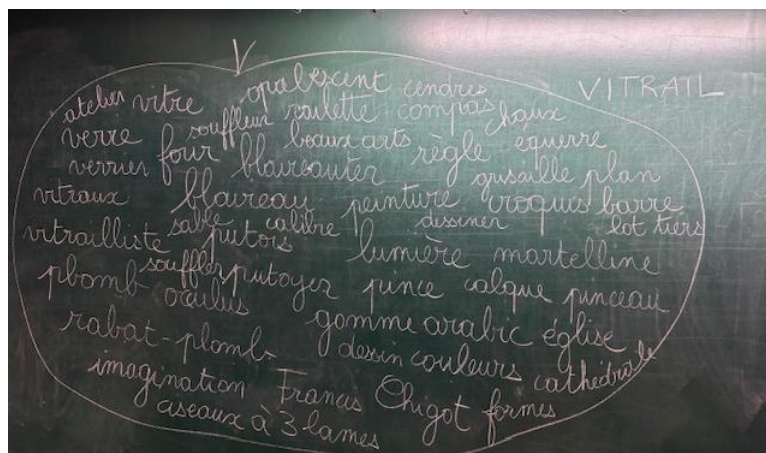 V
VITRAIL
opalescent cendres
atelier vitre souffleur roulette compas chaux
verre four beaux arts règle équerre
verrier blaireauter grisaille plan
vitraux blaireau peinture croquis barre
sable calibre dessiner lot tiers
vitrailliste putois lumière martelline
plomb souffler putoyer pince calque pinceau
oculus gomme arabic église
rabat-plomb dessin couleurs cathédrale
imagination Francis Chigot formes
ciseaux à 3 lames